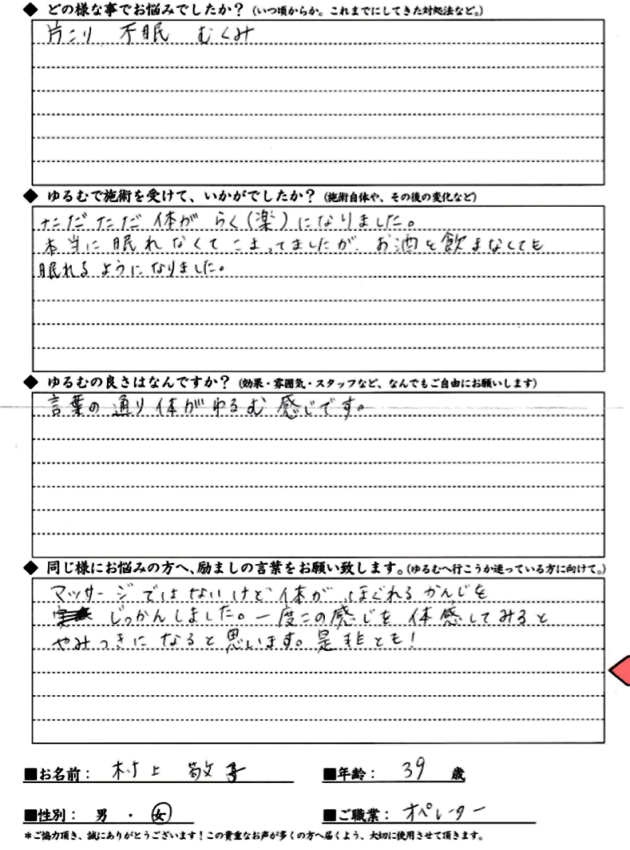 ◆ どの様な事でお悩みでしたか？(いつ頃からか。これまでにしてきた対処法など。)
片こり 不眠 むくみ
◆ ゆるむで施術を受けて、いかがでしたか？(施術自体や、その後の変化など)
ただただ体がらく(楽)になりました。
本当に眠れなくてこまってましたが、お酒を飲まなくても
眠れるようになりました。
◆ ゆるむの良さはなんですか？(効果・雰囲気・スタッフなど、なんでもご自由にお願いします)
言葉の通り体がゆるむ感じです。
◆ 同じ様にお悩みの方へ、励ましの言葉をお願い致します。(ゆるむへ行こうか迷っている方に向けて。)
マッサージではないけど体がほぐれるかんじを
じっかんしました。一度この感じを体感してみると
やみつきになると思います。是非とも！
■お名前： 村上 敬子 ■年齢： 39 歳
■性別： 男 ・ 女 ■ご職業： オペレーター
＊ご協力頂き、誠にありがとうございます！この貴重なお声が多くの方へ届くよう、大切に使用させて頂きます。